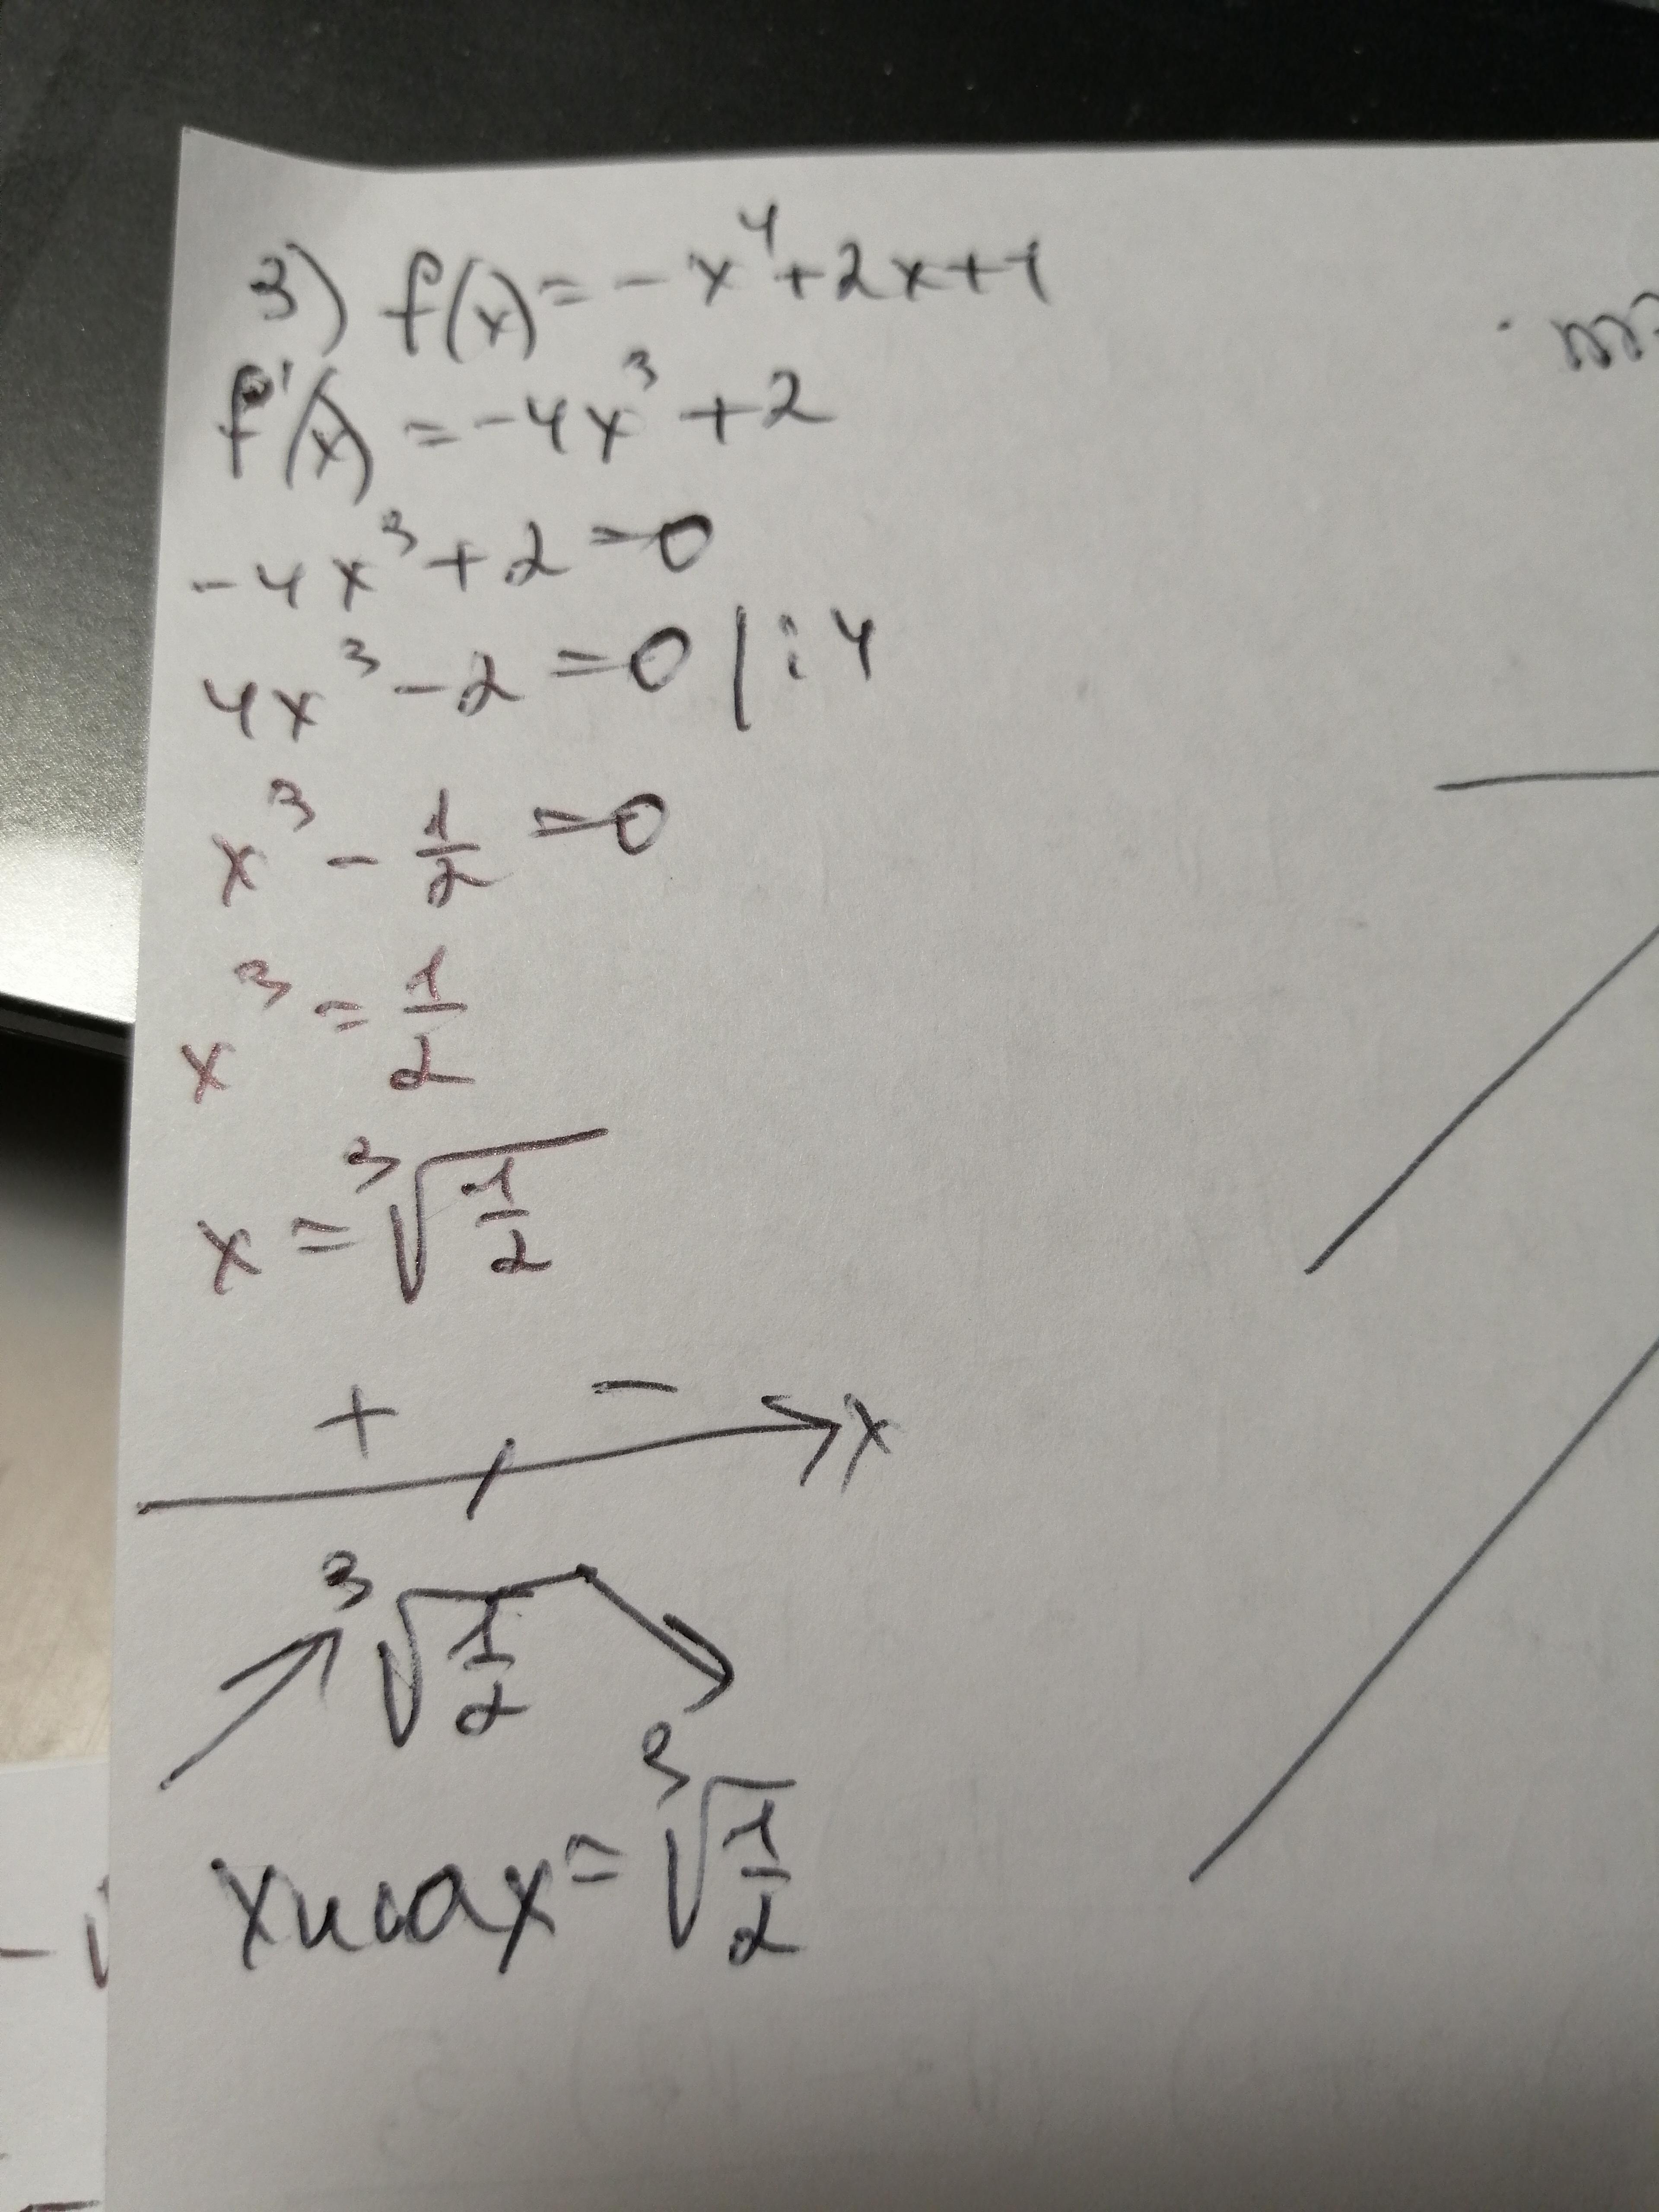 3) f(x) = -x⁴+2x+1
f'(x) = -4x³+2
-4x³+2=0
4x³-2=0 |:4
x³ - 1/2 = 0
x³ = 1/2
x = ∛(1/2)
+ - x
∛(1/2)
xmax = ∛(1/2)